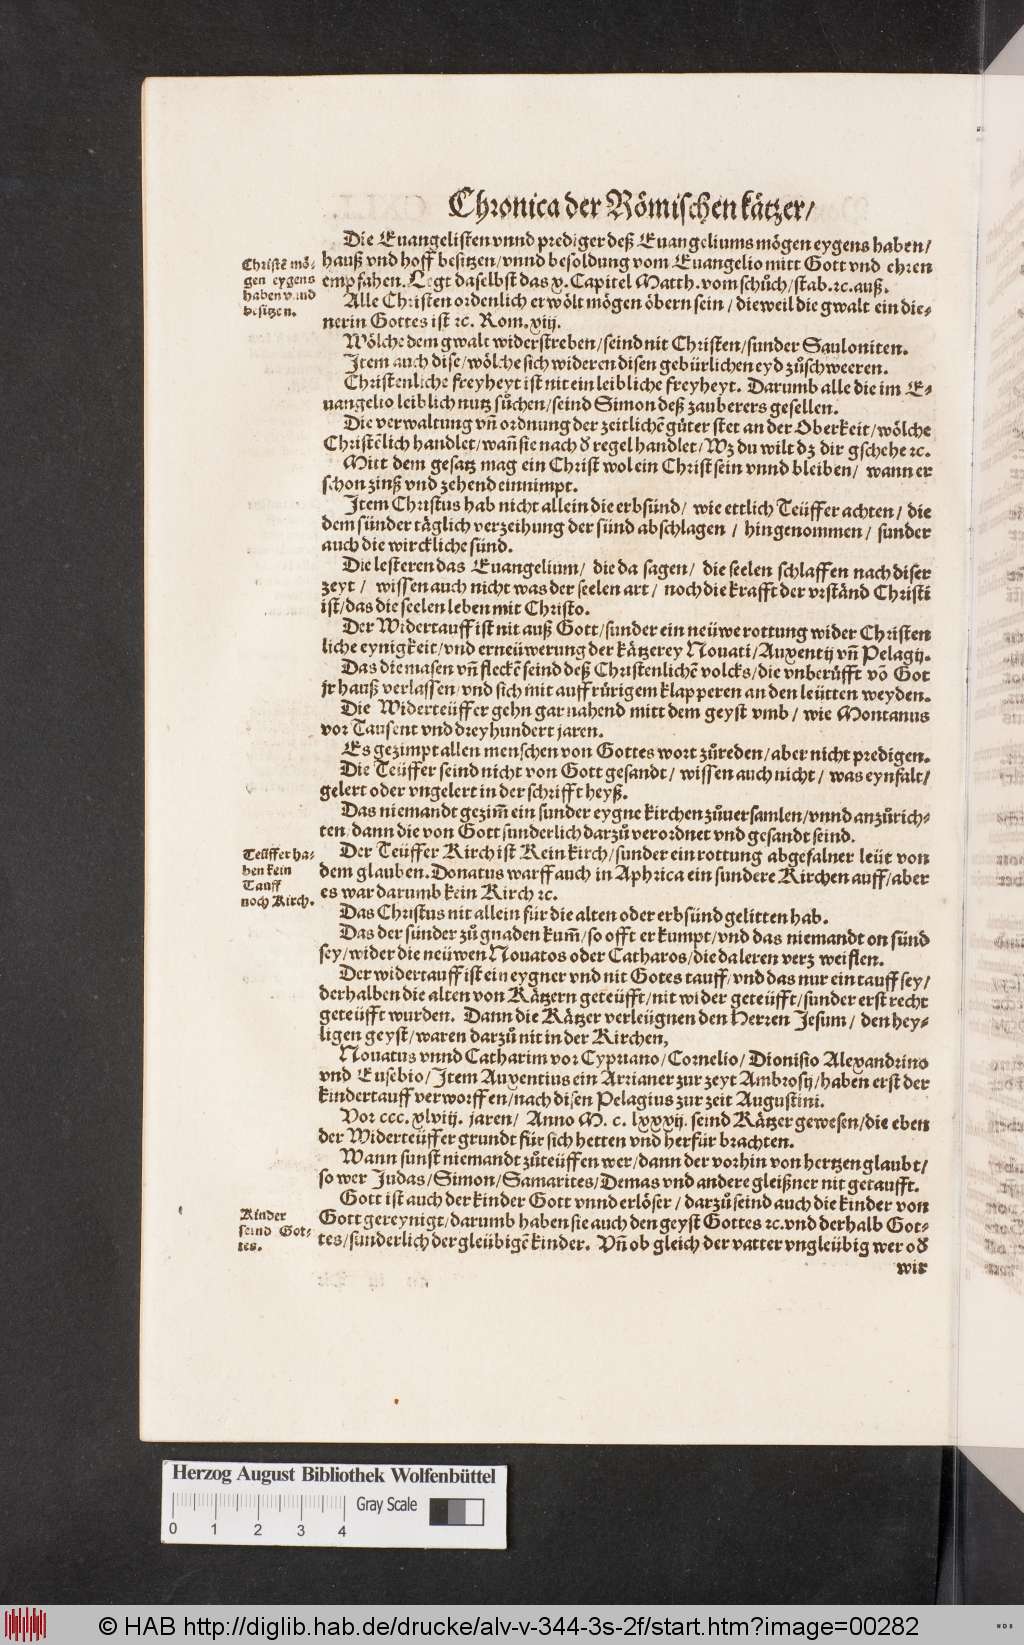 Chronica der Römischen kätzer/
Die Euangelisten vnnd prediger deß Euangeliums mögen eygens haben/
hauß vnd hoff besitzen/ vnnd besoldung vom Euangelio mitt Gott vnd ehren
empfahen. Legt daselbst das x. Capitel Matth. vom schůch/ stab. ꝛc. auß.
Christē mö-
gen eygens
haben vnnd
besitzen.
Alle Christen ordenlich erwölt mögen öbern sein/ dieweil die gwalt ein die-
nerin Gottes ist ꝛc. Rom. xiij.
Wölche dem gwalt widerstreben/ seind nit Christen/ sunder Sauloniten.
Item auch dise/ wölche sich wideren disen gebürlichen eyd zůschweeren.
Christenliche freyheyt ist nit ein leibliche freyheyt. Darumb alle die im E-
uangelio leiblich nutz sůchen/ seind Simon deß zauberers gesellen.
Die verwaltung vñ ordnung der zeitlichē gůter stet an der Oberkeit/ wölche
Christēlich handlet/ wañ sie nach d regel handlet/ Wz du wilt dz dir gschehe ꝛc.
Mitt dem gesatz mag ein Christ wol ein Christ sein vnnd bleiben/ wann er
schon zinß vnd zehend einnimpt.
Item Christus hab nicht allein die erbsünd/ wie ettlich Teüffer achten/ die
dem sünder täglich verzeihung der sünd abschlagen/ hingenommen/ sunder
auch die wirckliche sünd.
Die lesteren das Euangelium/ die da sagen/ die seelen schlaffen nach diser
zeyt/ wissen auch nicht was der seelen art/ noch die krafft der vrständ Christi
ist/ das die seelen leben mit Christo.
Der Widertauff ist nit auß Gott/ sunder ein neüwe rottung wider Christen
liche eynigkeit/ vnd erneüwerung der kätzerey Nouati/ Auxentij vñ Pelagij.
Das die masen vñ fleckē seind deß Christenlichē volcks/ die vnberůfft vō Got
jr hauß verlassen/ vnd sich mit auffrůrigem klapperen an den leütten weyden.
Die Widerteüffer gehn gar nahend mitt dem geyst vmb/ wie Montanus
vor Tausent vnd dreyhundert jaren.
Es gezimpt allen menschen von Gottes wort zůreden/ aber nicht predigen.
Die Teüffer seind nicht von Gott gesandt/ wissen auch nicht/ was eynfalt/
gelert oder vngelert in der schrifft heyß.
Das niemandt gezim̄ ein sunder eygne kirchen zůuersamlen/ vnnd anzůrich-
ten/ dann die von Gott sunderlich darzů verordnet vnd gesandt seind.
Teüffer ha-
ben kein
Tauff
noch Kirch.
Der Teüffer Kirch ist Kein kirch/ sunder ein rottung abgefalner leüt von
dem glauben. Donatus warff auch in Aphrica ein sundere Kirchen auff/ aber
es war darumb kein Kirch ꝛc.
Das Christus nit allein für die alten oder erbsünd gelitten hab.
Das der sünder zů gnaden kum̄/ so offt er kumpt/ vnd das niemandt on sünd
sey/ wider die neüwen Nouatos oder Catharos/ die da leren verzweiflen.
Der widertauff ist ein eygner vnd nit Gotes tauff/ vnd das nur ein tauff sey/
derhalben die alten von Kätzern geteüfft/ nit wider geteüfft/ sunder erst recht
geteüfft wurden. Dann die Kätzer verleügnen den Herren Jesum/ den hey-
ligen geyst/ waren darzů nit in der Kirchen,
Nouatus vnnd Catharim vor Cypriano/ Cornelio/ Dionisio Alexandrino
vnd Eusebio/ Item Auxentius ein Arrianer zur zeyt Ambrosij/ haben erst der
kindertauff verworffen/ nach disen Pelagius zur zeit Augustini.
Vor ccc. xlviij. jaren/ Anno M. c. lxxxvij. seind Kätzer gewesen/ die eben
der Widerteüffer grundt für sich hetten vnd herfür brachten.
Wann sunst niemandt zůteüffen wer/ dann der vorhin von hertzen glaubt/
so wer Judas/ Simon/ Samarites/ Demas vnd andere gleißner nit getaufft.
Gott ist auch der kinder Gott vnnd erlöser/ darzů seind auch die kinder von
Gott gereynigt/ darumb haben sie auch den geyst Gottes ꝛc. vnd derhalb Got-
tes/ sunderlich der gleübigē kinder. Vñ ob gleich der vatter vngleübig wer od
Kinder
seind Got-
tes.
wir
Herzog August Bibliothek Wolfenbüttel
Gray Scale
0 1 2 3 4
© HAB http://diglib.hab.de/drucke/alv-v-344-3s-2f/start.htm?image=00282